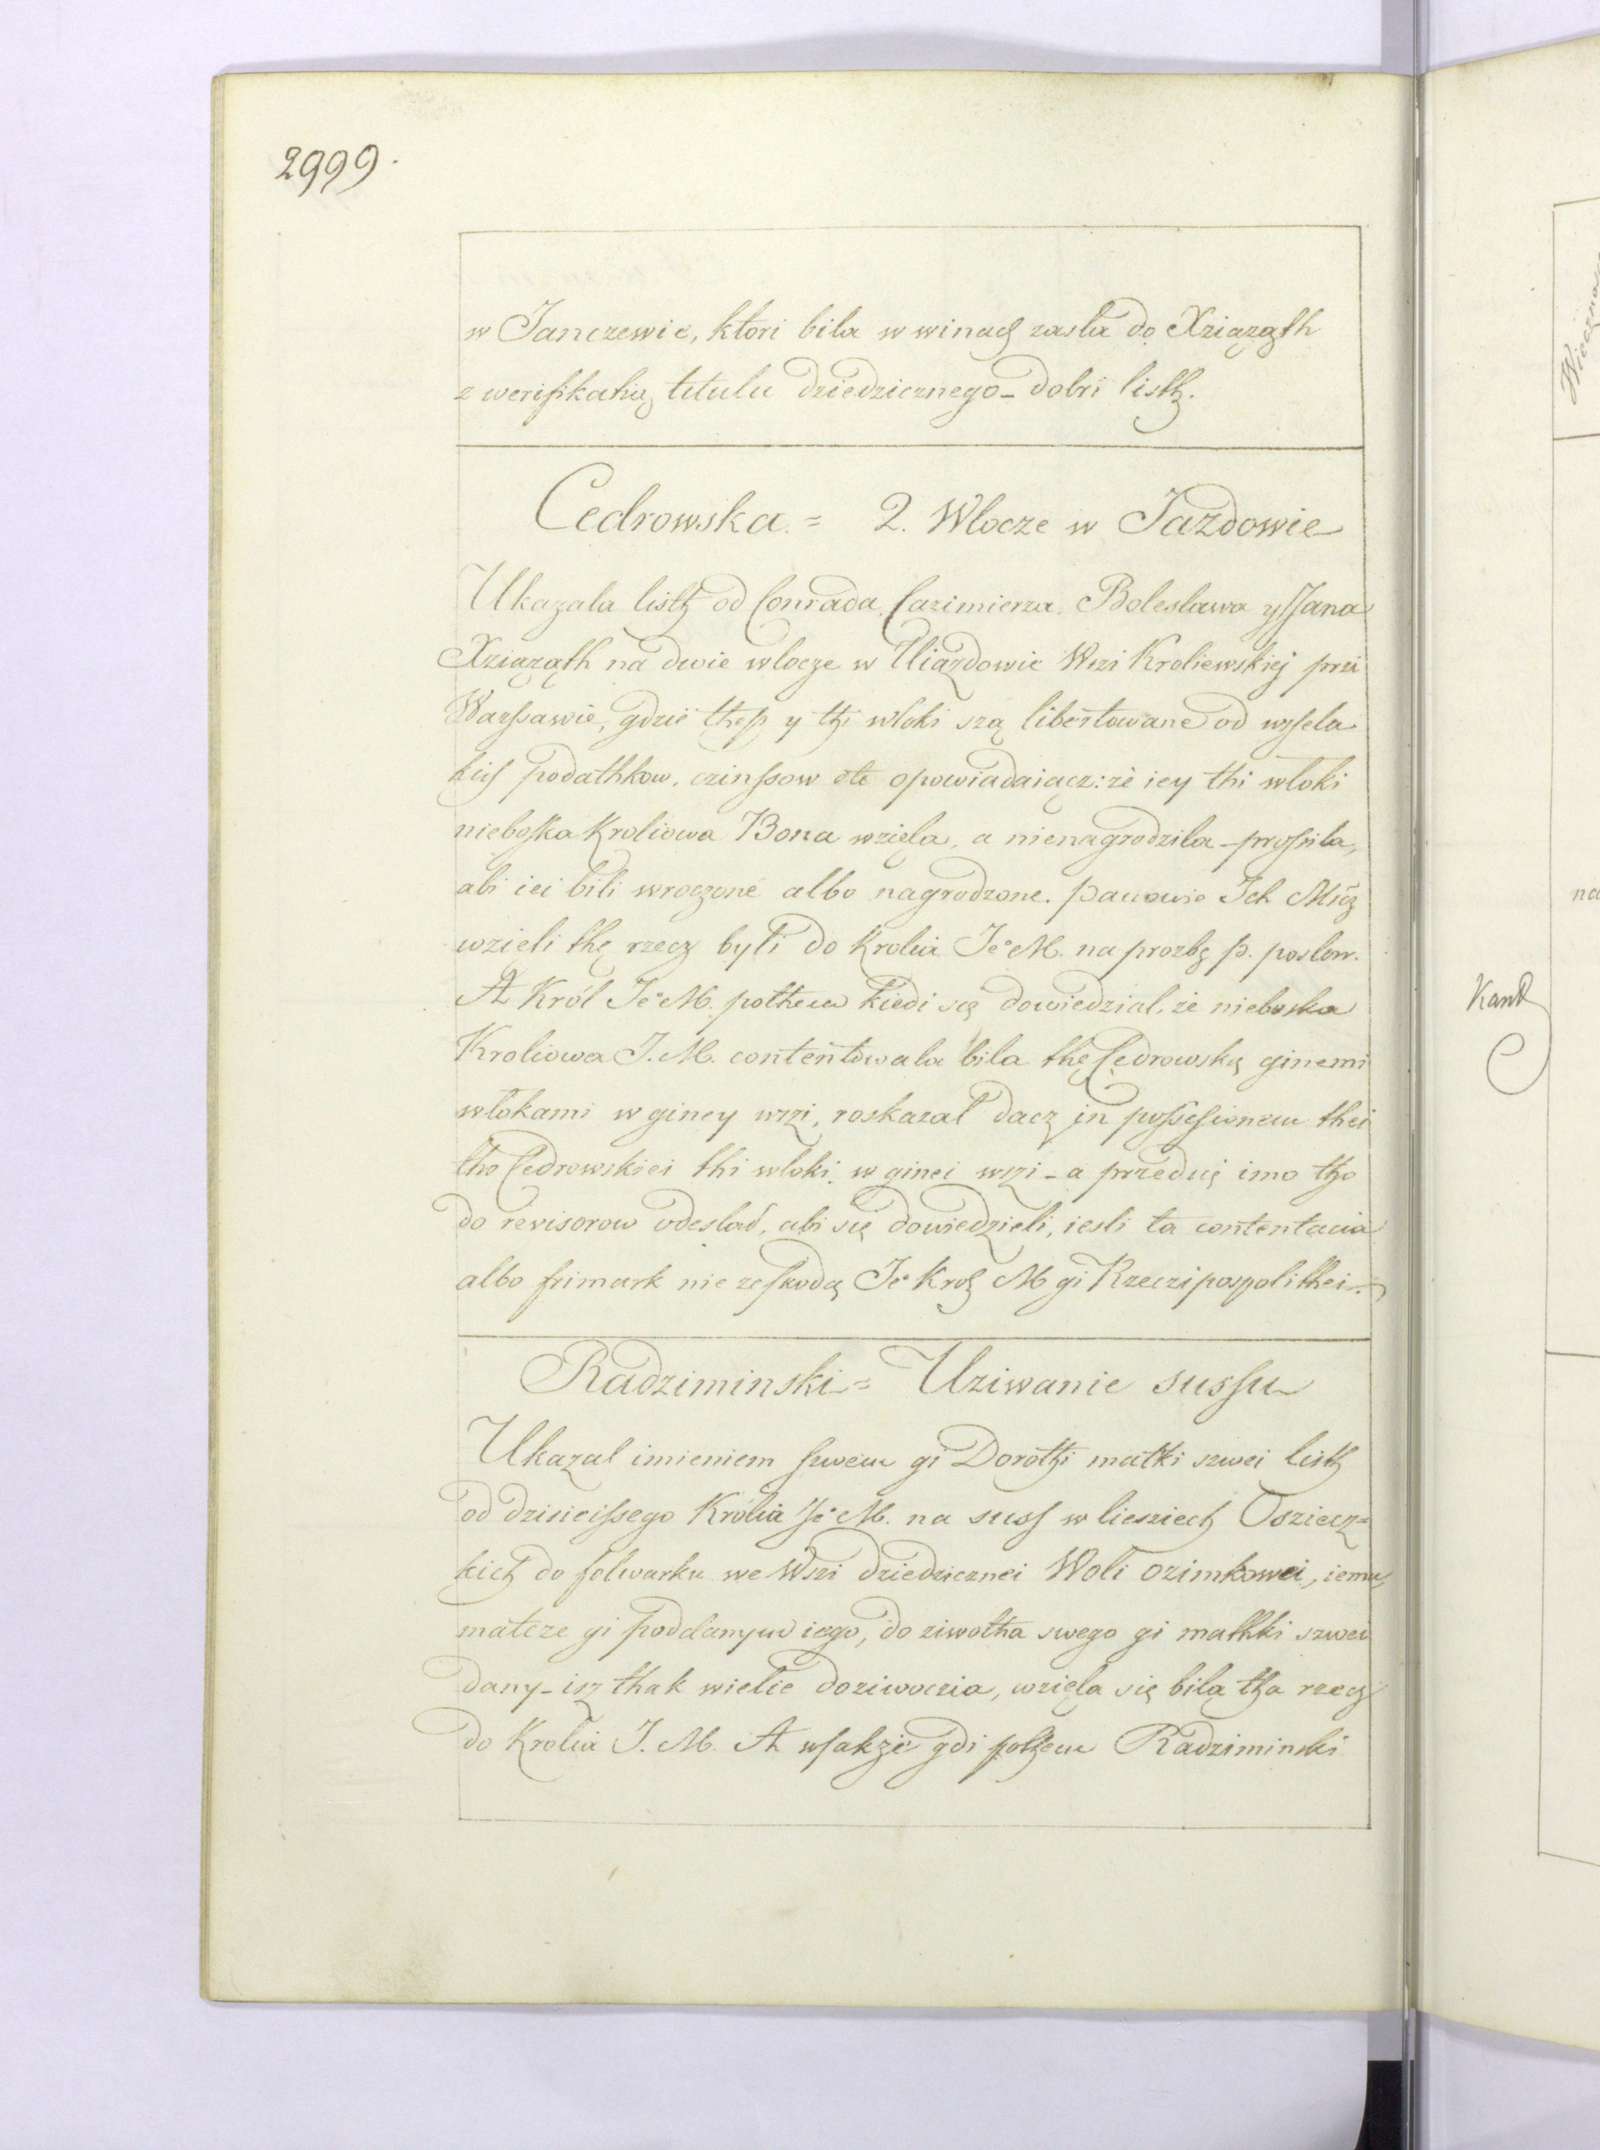 2999.
w Janczewie, ktori bila w winach zasla do Xziązath
z werifikatią titulu dziedzicznego – dobri listh.
Cedrowska = 2. Wlocze w Jazdowie
Ukazala listh od Conrada, Cazimierza, Boleslawa y Jana
Xziązath na dwie wlocze w Uiazdowie Wszi Kroliewskiej przi
Warssawie, gdzie thess y thi wloki szą libertowane od wssela
kich podathkow, czinssow etc opowiadaiącz: że iey thi wloki
nieboska Kroliowa Bona wzięla, a nienagrodzila – prossila,
abi iei bili wroczone albo nagrodzone. Panowie Ich Mścz
wzięli thę rzecz byli do Krolia Je° M. na prozbę p. poslow.
A Król Je° M. pothem kiedi się dowiedzial, że nieboska
Kroliowa J. M. contentowala bila thę Cędrowską ginemi
wlokami w giney wszi, roskazal dacz in possessionem thei
tho Cedrowskiei thi wloki w ginei wszi – a przedsię imo tho
do revisorow odeslać, abi się dowiedzieli, iesli ta contentacia
albo frimark nie ze skodą Je° Krol M gi Rzeczipospolithei.
Radziminski = Uziwanie sussu
Ukazal imieniem swem gi Dorothi matki szwei listh
od dzisieissego Królia Je° M. na suss w liesziech Osziecz=
kich do folwarku we Wszi dziedzicznei Woli ozimkowei, iemu,
matcze gi poddanym iego, do ziwotha swego gi mathki szwei
dany – isz thak wielie doziwoczia, wzięla się bila tha rzecz
do Krolia J. M. A wsakże gdi pothem Radziminski
Kank
na